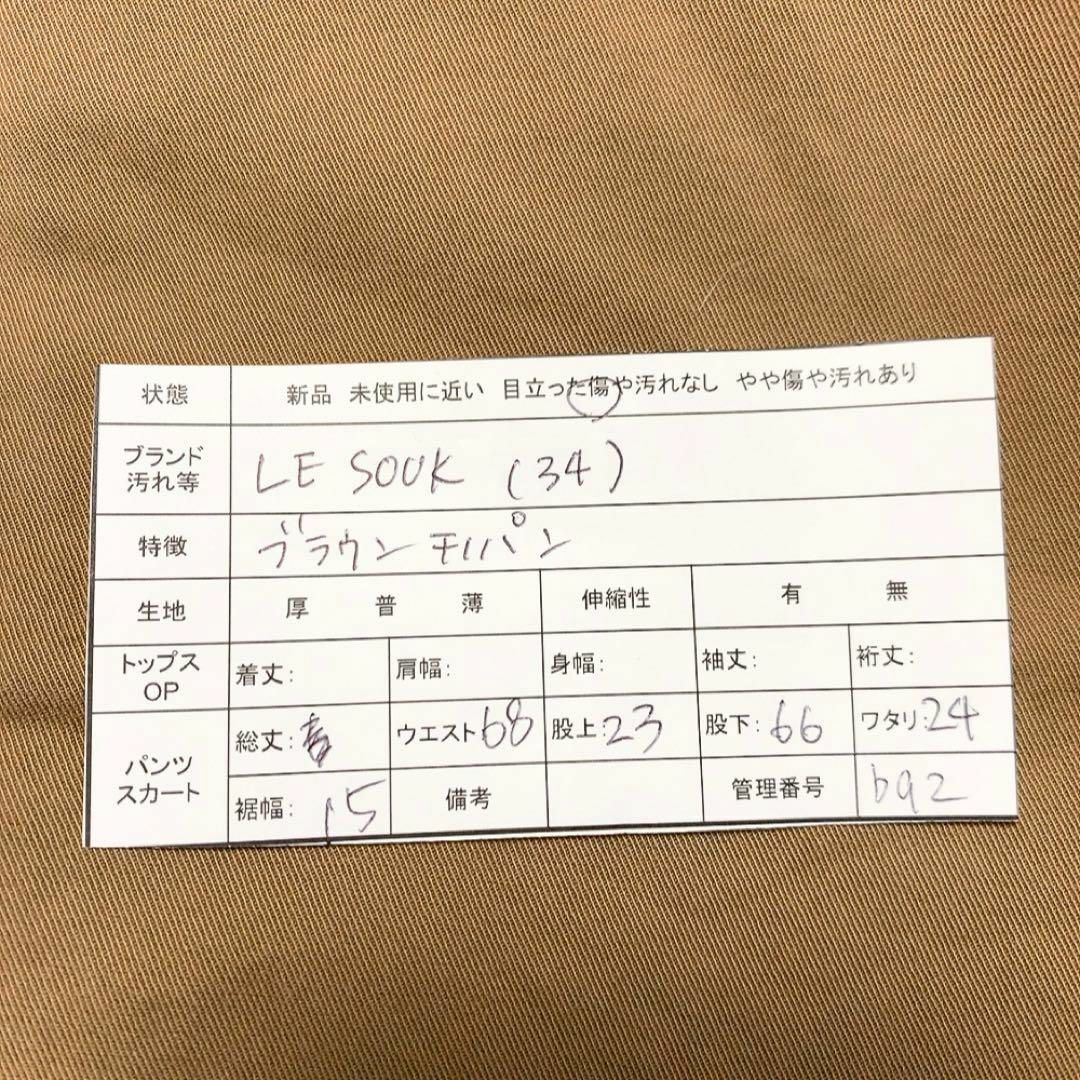 状態 新品 未使用に近い 目立った傷や汚れなし やや傷や汚れあり
ブランド
汚れ等 LE SOUK (34)
特徴 ブラウン モルパン
生地 厚 普 薄 伸縮性 有 無
トップス
OP 着丈: 肩幅: 身幅: 袖丈: 裄丈:
パンツ
スカート 総丈: ウエスト68 股上:23 股下:66 ワタリ:24
裾幅: 15 備考 管理番号 b92